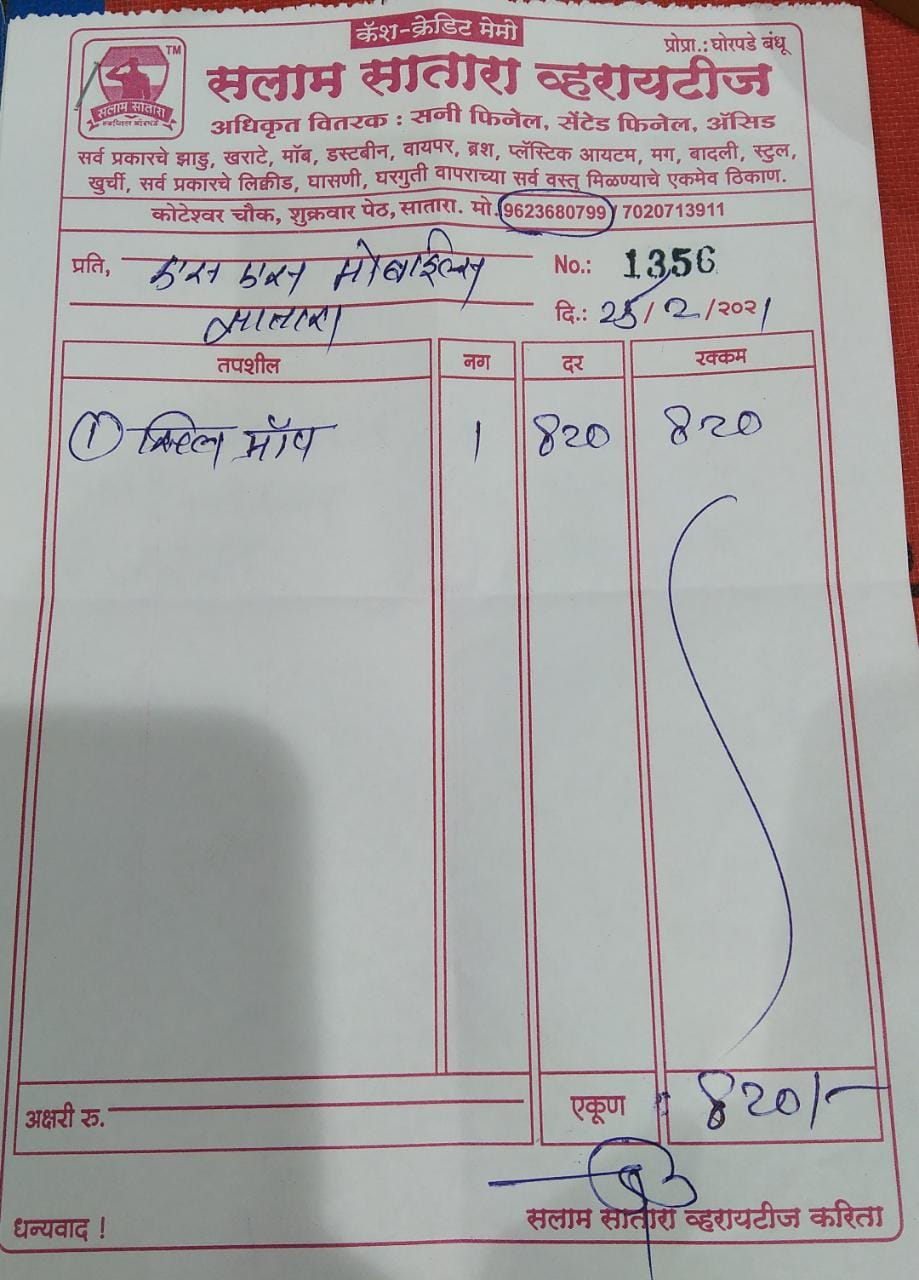 कॅश-क्रेडिट मेमो
प्रोप्रा.: घोरपडे बंधू
TM
सलाम सातारा
सलाम सातारा व्हरायटीज
अधिकृत वितरक : सनी फिनेल, सेंटेड फिनेल, ॲसिड
सर्व प्रकारचे झाडु, खराटे, मॉब, डस्टबीन, वायपर, ब्रश, प्लॅस्टिक आयटम, मग, बादली, स्टुल,
खुर्ची, सर्व प्रकारचे लिक्वीड, घासणी, घरगुती वापराच्या सर्व वस्तू मिळण्याचे एकमेव ठिकाण.
कोटेश्वर चौक, शुक्रवार पेठ, सातारा. मो. 9623680799 / 7020713911
प्रति, एस एस मोबाईल्स No.: 1356
सातारा दि.: 25/2/२०२१
तपशील नग दर रक्कम
1 स्टिल मॉप 1 820 820
अक्षरी रु. एकूण 820/-
सलाम सातारा व्हरायटीज करिता
धन्यवाद !